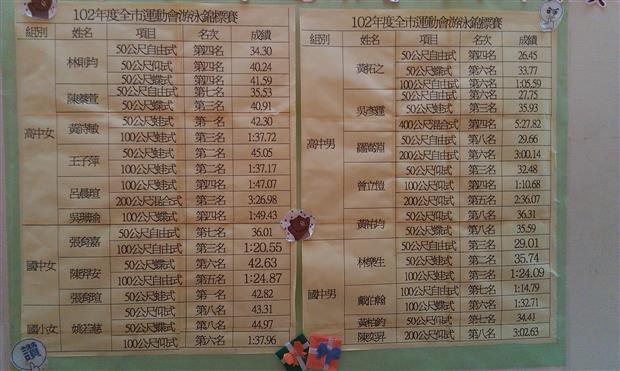 102年度全市運動會游泳錦標賽
組別 姓名 項目 名次 成績
高中女
50公尺自由式 第四名 34.30
50公尺仰式 第四名 40.24
50公尺蝶式 第四名 41.59
50公尺自由式 第七名 35.53
50公尺蝶式 第三名 40.91
黃詩敏 50公尺蛙式 第一名 42.30
100公尺蛙式 第三名 1:37.72
王子萍 50公尺蛙式 第二名 45.05
100公尺蛙式 第二名 1:37.17
呂晨瑄 100公尺蛙式 第四名 1:47.07
200公尺混合式 第三名 3:26.98
100公尺蝶式 第四名 1:49.43
國中女
張育嘉 50公尺自由式 第七名 36.01
100公尺自由式 第三名 1:20.55
50公尺蝶式 第六名 42.63
100公尺自由式 第五名 1:24.87
張育瑄 50公尺蛙式 第一名 42.82
國小女
姚若慈 50公尺仰式 第八名 43.31
50公尺蝶式 第八名 44.97
100公尺仰式 第六名 1:37.96
讚
102年度全市運動會游泳錦標賽
組別 姓名 項目 名次 成績
高中男
黃柘之 50公尺自由式 第四名 26.45
50公尺仰式 第六名 33.77
100公尺自由式 第六名 1:05.59
50公尺自由式 第八名 27.75
50公尺蛙式 第三名 35.93
400公尺混合式 第四名 5:27.82
50公尺蝶式 第八名 29.66
200公尺自由式 第六名 3:00.14
曾立愷 50公尺仰式 第三名 32.48
100公尺仰式 第四名 1:10.68
200公尺仰式 第五名 2:36.07
黃祐均 50公尺仰式 第八名 36.31
50公尺蝶式 第八名 35.59
國中男
林樂生 50公尺自由式 第三名 29.01
50公尺蛙式 第二名 35.74
100公尺蛙式 第三名 1:24.09
戴伯翰 100公尺自由式 第七名 1:14.79
100公尺蝶式 第六名 1:32.71
黃柏鈞 50公尺仰式 第七名 34.41
陳奕昇 200公尺仰式 第八名 3:02.63